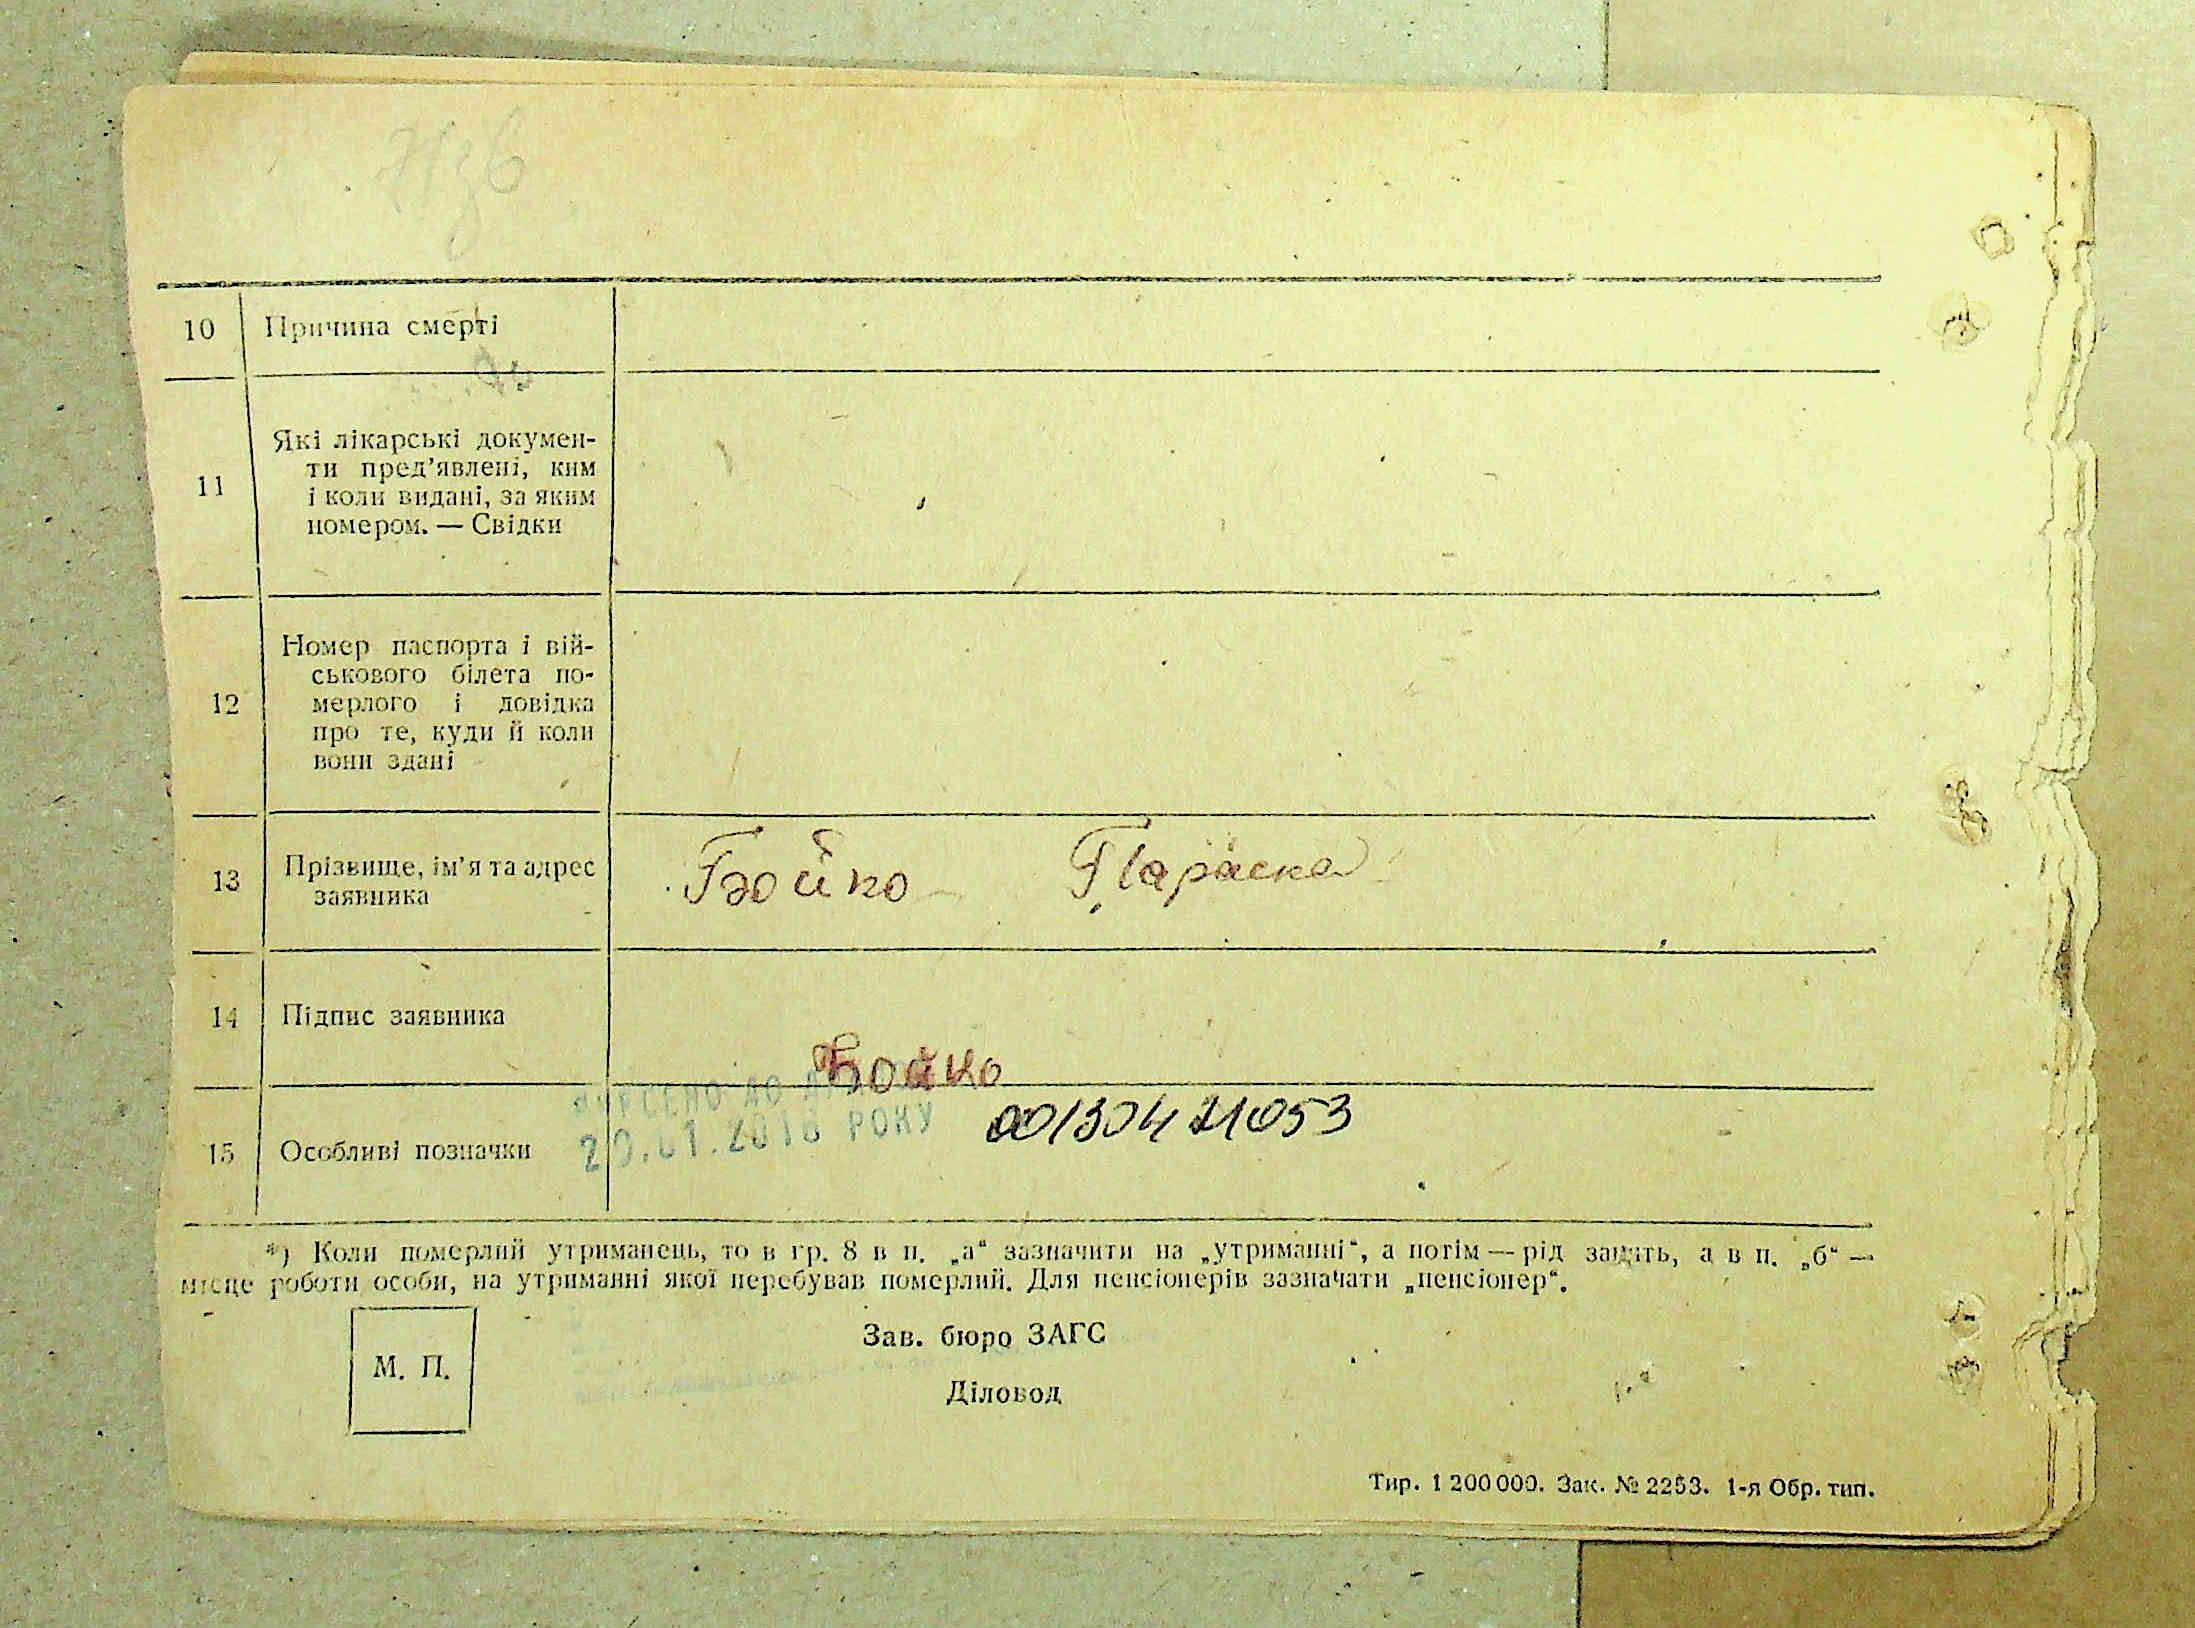 10 Причина смерті
11 Які лікарські докумен-
ти пред’явлені, ким
і коли видані, за яким
номером. — Свідки
12 Номер паспорта і вій-
ськового білета по-
мерлого і довідка
про те, куди й коли
вони здані
13 Прізвище, ім’я та адрес
заявника
Бойко Параска
14 Підпис заявника
Бойко
ВНЕСЕНО ДО
15 Особливі позначки
РОКУ
00130421053
*) Коли померлий утриманець, то в гр. 8 в п. „а“ зазначити на „утриманні“, а потім — рід занять, а в п. „б“ —
місце роботи особи, на утриманні якої перебував померлий. Для пенсіонерів зазначати „пенсіонер“.
М. П.
Зав. бюро ЗАГС
Діловод
Тир. 1 200 000. Зак. № 2253. 1-я Обр. тип.